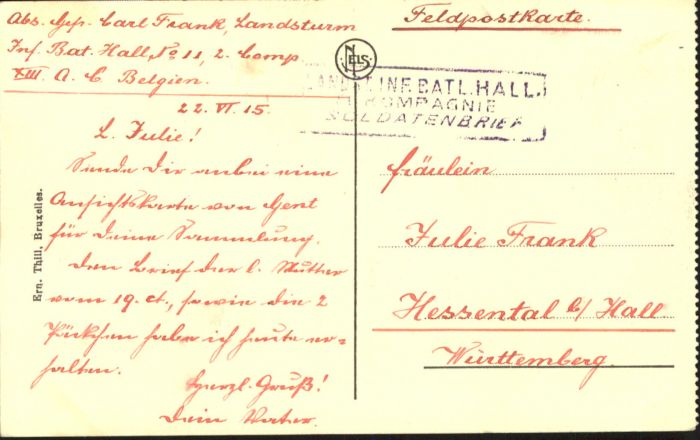 Abs. Gefr. Carl Frank, Landsturm
Inf. Bat. Hall, No 11, 2. Comp
XIII. A. C. Belgien.
22. VI. 15.
L. Julie!
Sende Dir anbei eine
Ansichtskarte von Gent
für Deine Sammlung.
Den Brief der l. Mutter
vom 19. ct., sowie die 2
Päckchen habe ich heute er=
halten.
Herzl. Gruß!
Dein Vater.
Ern. Thill, Bruxelles.
NELS
Feldpostkarte.
INF. BATL. HALL.
KOMPAGNIE
SOLDATENBRIEF
Fräulein
Julie Frank
Hessental b/ Hall
Württemberg.